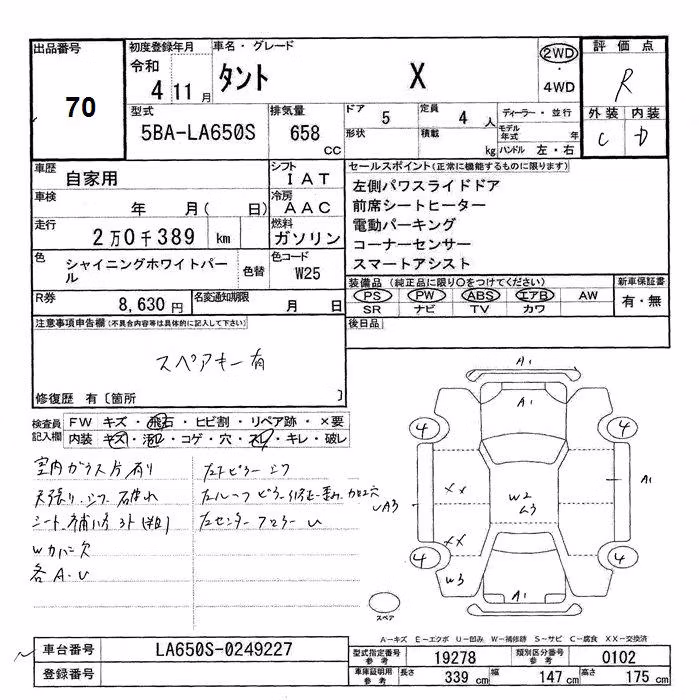 出品番号
70
初度登録年月
令和
4 11月
車名・グレード
タント X
2WD
・
4WD
評価点
R
外装 内装
C D
型式
5BA-LA650S
排気量
658
cc
ドア 5
定員 4 人
ディーラー・並行
形状
積載 kg
モデル年式 年
ハンドル 左・右
車歴
自家用
シフト
IAT
車検
年 月( 日)
冷房
AAC
走行
2万0千389 km
燃料
ガソリン
色
シャイニングホワイトパール
色替
色コード
W25
R券
8,630円
名変通知期限
月 日
セールスポイント(正常に機能するものに限ります)
左側パワスライドドア
前席シートヒーター
電動パーキング
コーナーセンサー
スマートアシスト
装備品 (純正品に限り〇をつけてください)
PS PW ABS エアB AW
SR ナビ TV カワ
新車保証書
有・無
後日品
注意事項申告欄(不具合内容等は具体的に記入して下さい)
スペアキー有
修復歴 有〔箇所 〕
検査員記入欄
FW キズ・飛石・ヒビ割・リペア跡・×要
内装 キズ・汚レ・コゲ・穴・スレ・キレ・破レ
室内ガラス片有り
天張り、シワ
シート補修
Wカバー欠
各A.U
左Fピラーシワ
左センターフロアーU
A1
A1
4
4
A1
XX
W2
XX
4
4
W3
A1
スペア
A―キズ E―エクボ U―凹み W―補修跡 S―サビ C―腐食 XX―交換済
車台番号
LA650S-0249227
登録番号
型式指定番号
参考
19278
類別区分番号
参考
0102
車庫証明用
参考
長さ 339 cm
幅 147 cm
高さ 175 cm